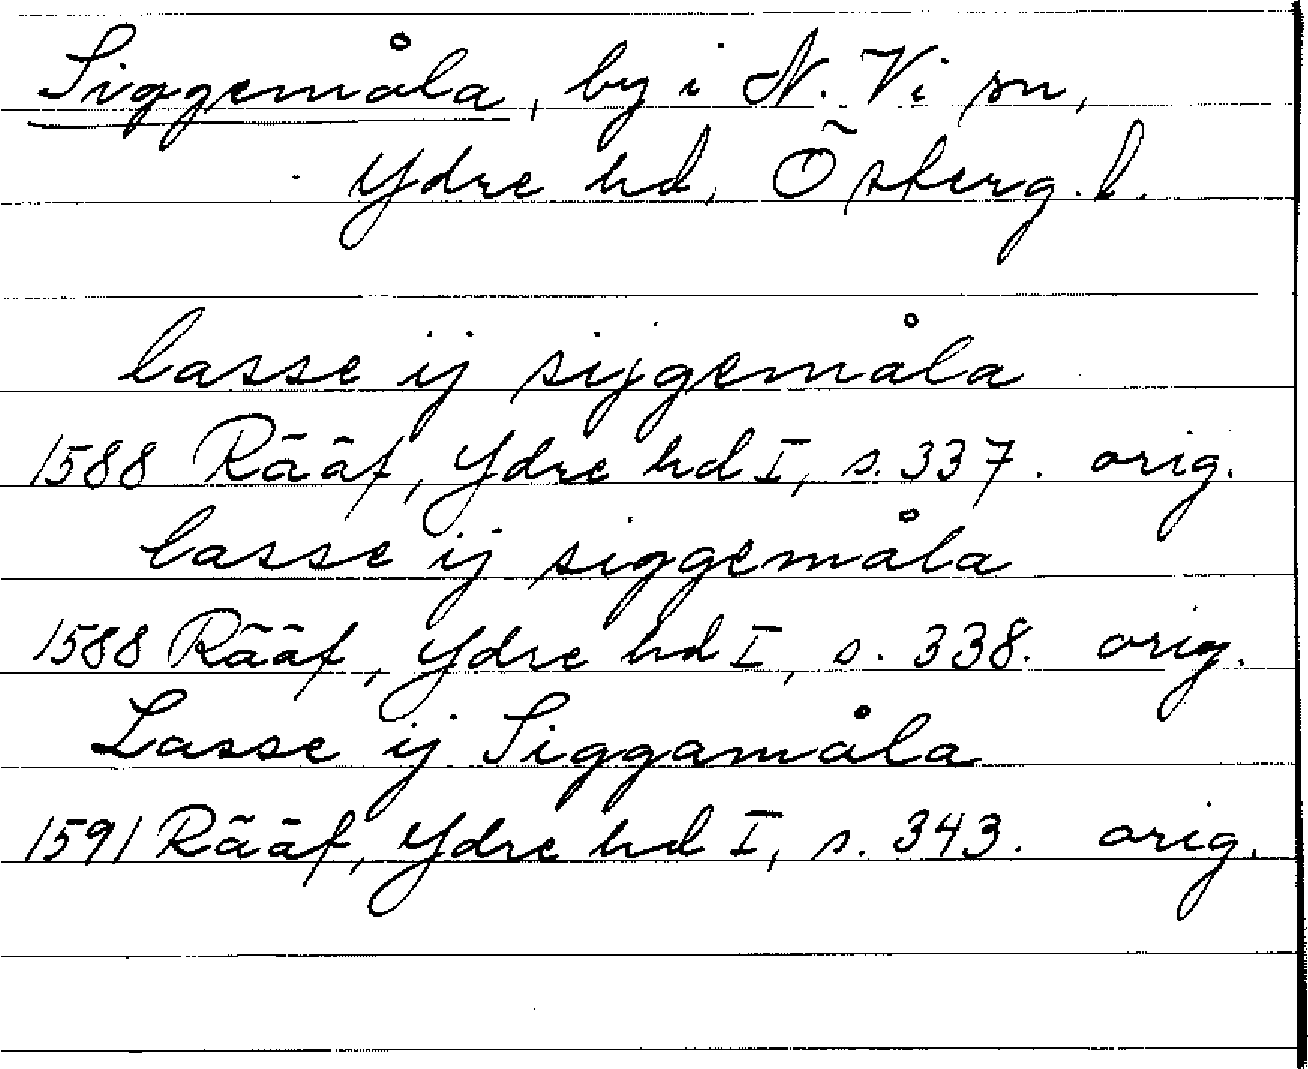 Siggemåla, by i N. Vi sn,
Ydre hd, Österg. l.
lasse ij sijgemåla
1588 Rääf, Ydre hd I, s. 337. orig.
lasse ij siggemåla
1588 Rääf, Ydre hd I, s. 338. orig.
Lasse ij Siggamåla
1591 Rääf, Ydre hd I, s. 343. orig.